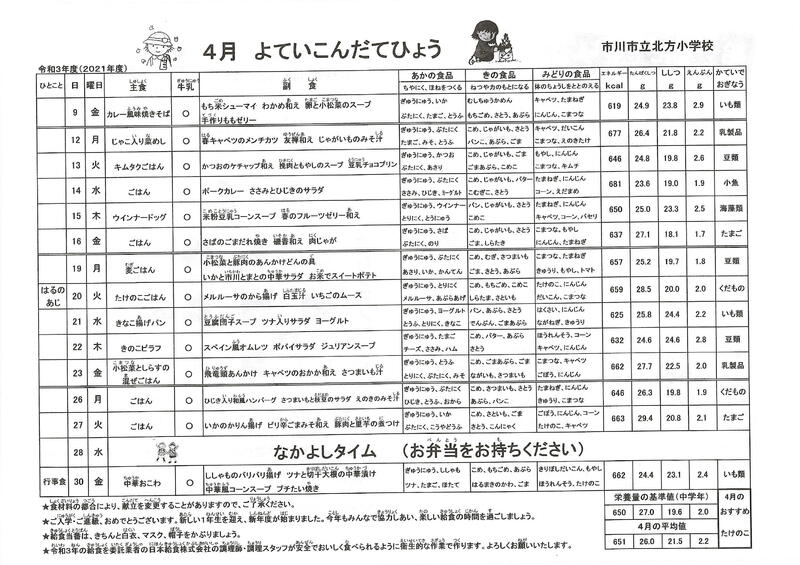 4月 よていこんだてひょう
市川市立北方小学校
令和3年度(2021年度)
ひとこと 日 曜日 主食 牛乳 副食 あかの食品 きの食品 みどりの食品 エネルギー たんぱくしつ ししつ えんぶん かていで
ちやにく、ほねをつくる ねつや力のもとになる 体のちょうしをととのえる kcal g g g おぎなう
9 金 カレー風味焼きそば ○ もち米シューマイ わかめ和え 卵と小松菜のスープ 手作りももゼリー ぎゅうにゅう、いか ぶたにく、たまご、とうふ むしちゅうかめん もちごめ、さとう、あぶら キャベツ、たまねぎ もも、にんじん 619 24.9 23.8 2.9 いも類
12 月 じゃこ入り菜めし ○ 春キャベツのメンチカツ 友禅和え じゃがいものみそ汁 ぎゅうにゅう、ぶたにく たまご、みそ、とうふ こめ、じゃがいも、さとう パンこ、あぶら、ごま キャベツ、だいこん こまつな、えのきたけ 677 26.4 21.8 2.2 乳製品
13 火 キムタクごはん ○ かつおのケチャップ和え 挽肉ともやしのスープ 豆乳チョコプリン ぎゅうにゅう、かつお ぶたにく、あさり こめ、じゃがいも、ごま ごまあぶら、こめこ もやし、にんじん こまつな、キムチ 646 24.8 19.8 2.6 豆類
14 水 ごはん ○ ポークカレー ささみとひじきのサラダ ぎゅうにゅう、ぶたにく ささみ、ひじき、ヨーグルト こめ、じゃがいも、バター こむぎこ、さとう たまねぎ、にんじん コーン、えだまめ 681 23.6 19.0 1.9 小魚
15 木 ウインナードッグ ○ 米粉豆乳コーンスープ 春のフルーツゼリー和え ぎゅうにゅう、ウインナー とりにく、とうにゅう パン、じゃがいも、さとう こめこ たまねぎ、にんじん キャベツ、コーン、パセリ 650 25.0 23.3 2.5 海藻類
16 金 ごはん ○ さばのごまだれ焼き 磯香和え 肉じゃが ぎゅうにゅう、さば ぶたにく、のり こめ、じゃがいも、さとう ごま、しらたき こまつな、もやし にんじん、たまねぎ 637 27.1 18.1 1.7 たまご
19 月 麦ごはん ○ 小松菜と豚肉のあんかけどんの具 いかと市川とまとの中華サラダ お米でスイートポテト ぎゅうにゅう、ぶたにく あさり、いか、かんてん こめ、むぎ、さつまいも ごま、さとう、あぶら こまつな、にんじん きゅうり、もやし、トマト 657 25.2 19.7 1.8 豆類
はるのあじ 20 火 たけのこごはん ○ メルルーサのから揚げ 白玉汁 いちごのムース ぎゅうにゅう、とりにく メルルーサ、あぶらあげ こめ、もちごめ、こめこ しらたま、さといも たけのこ、にんじん だいこん、こまつな 659 28.5 20.0 2.0 くだもの
21 水 きなこ揚げパン ○ 豆腐団子スープ ツナ入りサラダ ヨーグルト ぎゅうにゅう、ヨーグルト とうふ、とりにく、きなこ パン、あぶら、さとう でんぷん、ごまあぶら はくさい、にんじん ながねぎ、きゅうり 625 25.8 24.4 2.2 いも類
22 木 きのこピラフ ○ スペイン風オムレツ ポパイサラダ ジュリアンスープ ぎゅうにゅう、たまご チーズ、ささみ、ハム こめ、バター、あぶら さとう ほうれんそう、コーン キャベツ、にんじん 632 24.6 24.6 2.8 豆類
23 金 小松菜としらすの混ぜごはん ○ 飛竜頭あんかけ キャベツのおかか和え さつまいも汁 ぎゅうにゅう、とうふ ぶたにく、とりにく、みそ こめ、ごまあぶら、ごま ながいも、さつまいも こまつな、キャベツ ごぼう、にんじん 662 27.7 22.5 2.0 乳製品
26 月 ごはん ○ ひじき入り和風ハンバーグ さつまいもと枝豆のサラダ えのきのみそ汁 ぎゅうにゅう、ぶたにく ひじき、とうふ、おから こめ、さつまいも、さとう あぶら、パンこ たまねぎ、にんじん きゅうり、えのきたけ 646 26.3 19.8 1.9 くだもの
27 火 ごはん ○ いかのかりん揚げ ピリ辛ごまみそ和え 豚肉と里芋の煮つけ ぎゅうにゅう、いか ぶたにく、こうやどうふ こめ、さといも、ごま こめこ、さとう、あぶら ごぼう、にんじん、コーン たけのこ、キャベツ 663 29.4 20.8 2.1 たまご
28 水 なかよしタイム (お弁当をお持ちください)
行事食 30 金 中華おこわ ○ ししゃものパリパリ揚げ ツナと切干大根の中華漬け 中華風コーンスープ プチたい焼き ぎゅうにゅう、ししゃも ツナ、たまご、ほたて こめ、もちごめ、あぶら はるまきのかわ、ごま きりぼしだいこん、もやし ほうれんそう、たけのこ 662 24.4 23.1 2.4 いも類
★食材料の都合により、献立を変更することがありますので、ご了承ください。
★ご入学・ご進級、おめでとうございます。新しい1年生を迎え、新年度が始まりました。今年もみんなで協力しあい、楽しい給食の時間を過ごしましょう。
★給食当番は、きちんと白衣、マスク、帽子をかぶりましょう。
★令和3年の給食を委託業者の日本給食株式会社の調理師・調理スタッフが安全でおいしく食べられるように衛生的な作業で作ります。よろしくお願いいたします。
栄養量の基準値(中学年) 4月の
650 27.0 19.6 2.0 おすすめ
4月の平均値 たけのこ
651 26.0 21.5 2.2